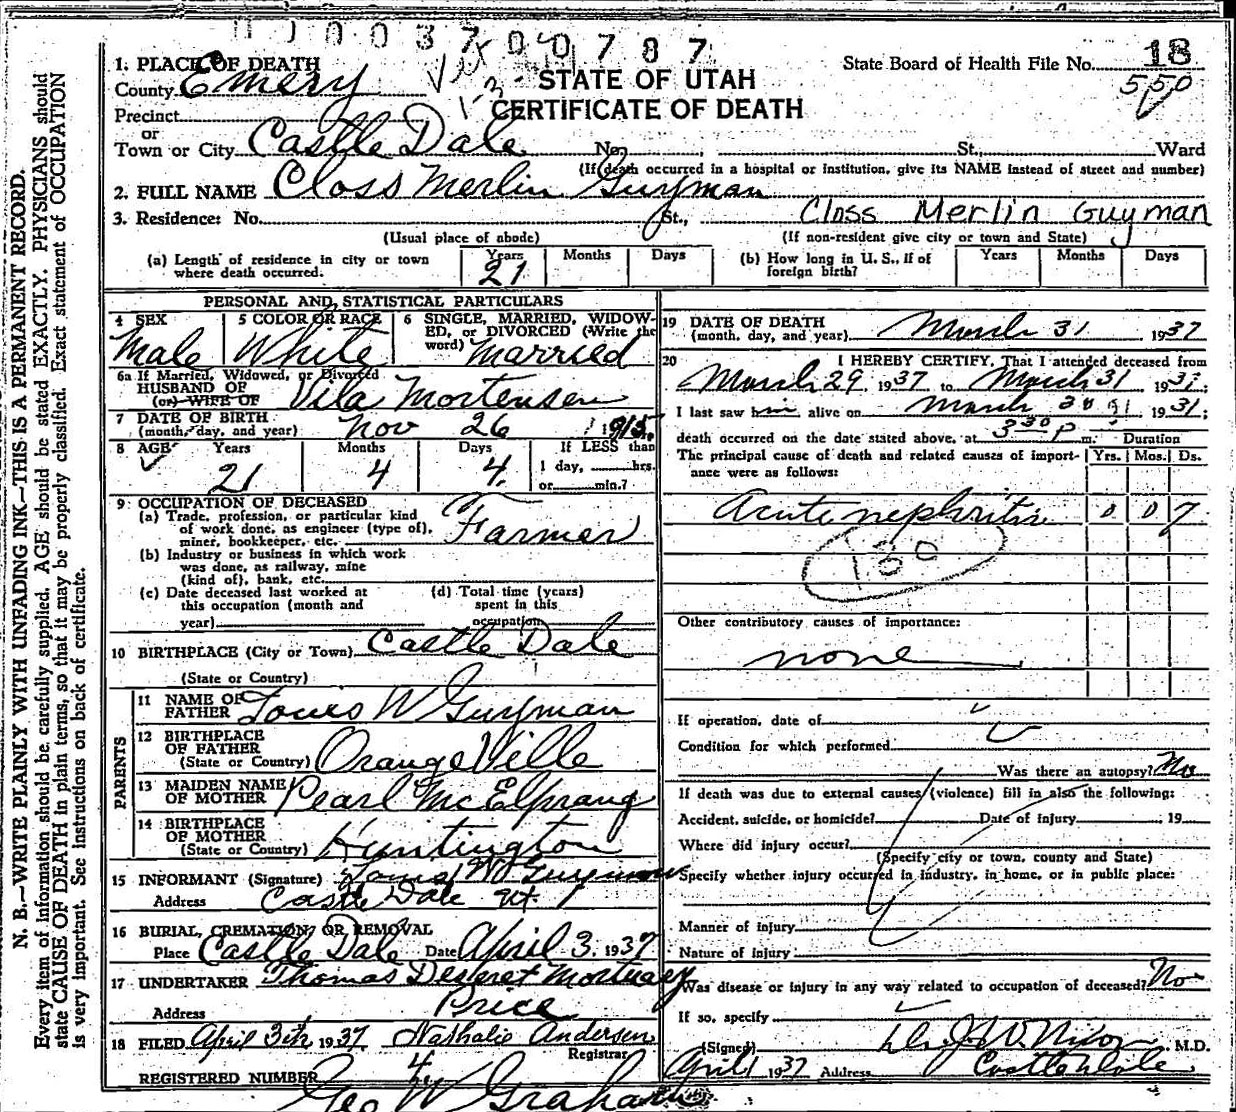 003700787
1. PLACE OF DEATH
County Emery
STATE OF UTAH
CERTIFICATE OF DEATH
State Board of Health File No. 18
550
Precinct
or
Town or City Castle Dale No. , St., Ward
(If death occurred in a hospital or institution, give its NAME instead of street and number)
2. FULL NAME Closs Merlin Guyman
3. Residence: No. St., Closs Merlin Guyman
(Usual place of abode) (If non-resident give city or town and State)
(a) Length of residence in city or town where death occurred. Years 21 Months Days
(b) How long in U. S., if of foreign birth? Years Months Days
PERSONAL AND STATISTICAL PARTICULARS
4 SEX Male
5 COLOR OR RACE White
6 SINGLE, MARRIED, WIDOWED, or DIVORCED (Write the word) Married
6a If Married, Widowed, or Divorced
HUSBAND OF
(or) WIFE OF Vila Mortensen
7 DATE OF BIRTH
(month, day, and year) Nov 26 1915
8 AGE Years 21 Months 4 Days 4
If LESS than
1 day, hrs.
or min.?
9 OCCUPATION OF DECEASED
(a) Trade, profession, or particular kind
of work done, as engineer (type of),
miner, bookkeeper, etc. Farmer
(b) Industry or business in which work
was done, as railway, mine
(kind of), bank, etc.
(c) Date deceased last worked at
this occupation (month and
year)
(d) Total time (years)
spent in this
occupation
10 BIRTHPLACE (City or Town) Castle Dale
(State or Country)
PARENTS
11 NAME OF
FATHER Louis W Guyman
12 BIRTHPLACE
OF FATHER
(State or Country) OrangeVille
13 MAIDEN NAME
OF MOTHER Pearl McElprang
14 BIRTHPLACE
OF MOTHER
(State or Country) Huntington
15 INFORMANT (Signature) Louis W Guymon
Address Castle Dale Ut.
16 BURIAL, CREMATION, OR REMOVAL
Place Castle Dale Date April 3, 1937
17 UNDERTAKER Thomas Deseret Mortuary
Address Price
18 FILED April 3th 1937 Nathalie Andersen
Registrar
REGISTERED NUMBER 4
Geo W Graham
19 DATE OF DEATH
(month, day, and year) March 31 1937
20 I HEREBY CERTIFY, That I attended deceased from
March 29 1937 to March 31 193
I last saw him alive on March 31 1931;
death occurred on the date stated above, at 3 30 P m. Duration
The principal cause of death and related causes of importance were as follows: Yrs. Mos. Ds.
Acute nephritis 0 0 7
130
Other contributory causes of importance:
none
If operation, date of
Condition for which performed
Was there an autopsy? No
If death was due to external causes (violence) fill in also the following:
Accident, suicide, or homicide? Date of injury 19
Where did injury occur?
(Specify city or town, county and State)
Specify whether injury occurred in industry, in home, or in public place:
Manner of injury
Nature of injury
Was disease or injury in any way related to occupation of deceased? No
If so, specify
(Signed) Nixon M.D.
April 1 1937 Address Castle Dale
N. B.—WRITE PLAINLY WITH UNFADING INK—THIS IS A PERMANENT RECORD.
Every item of information should be carefully supplied. AGE should be stated EXACTLY. PHYSICIANS should
state CAUSE OF DEATH in plain terms, so that it may be properly classified. Exact statement of OCCUPATION
is very important. See instructions on back of certificate.